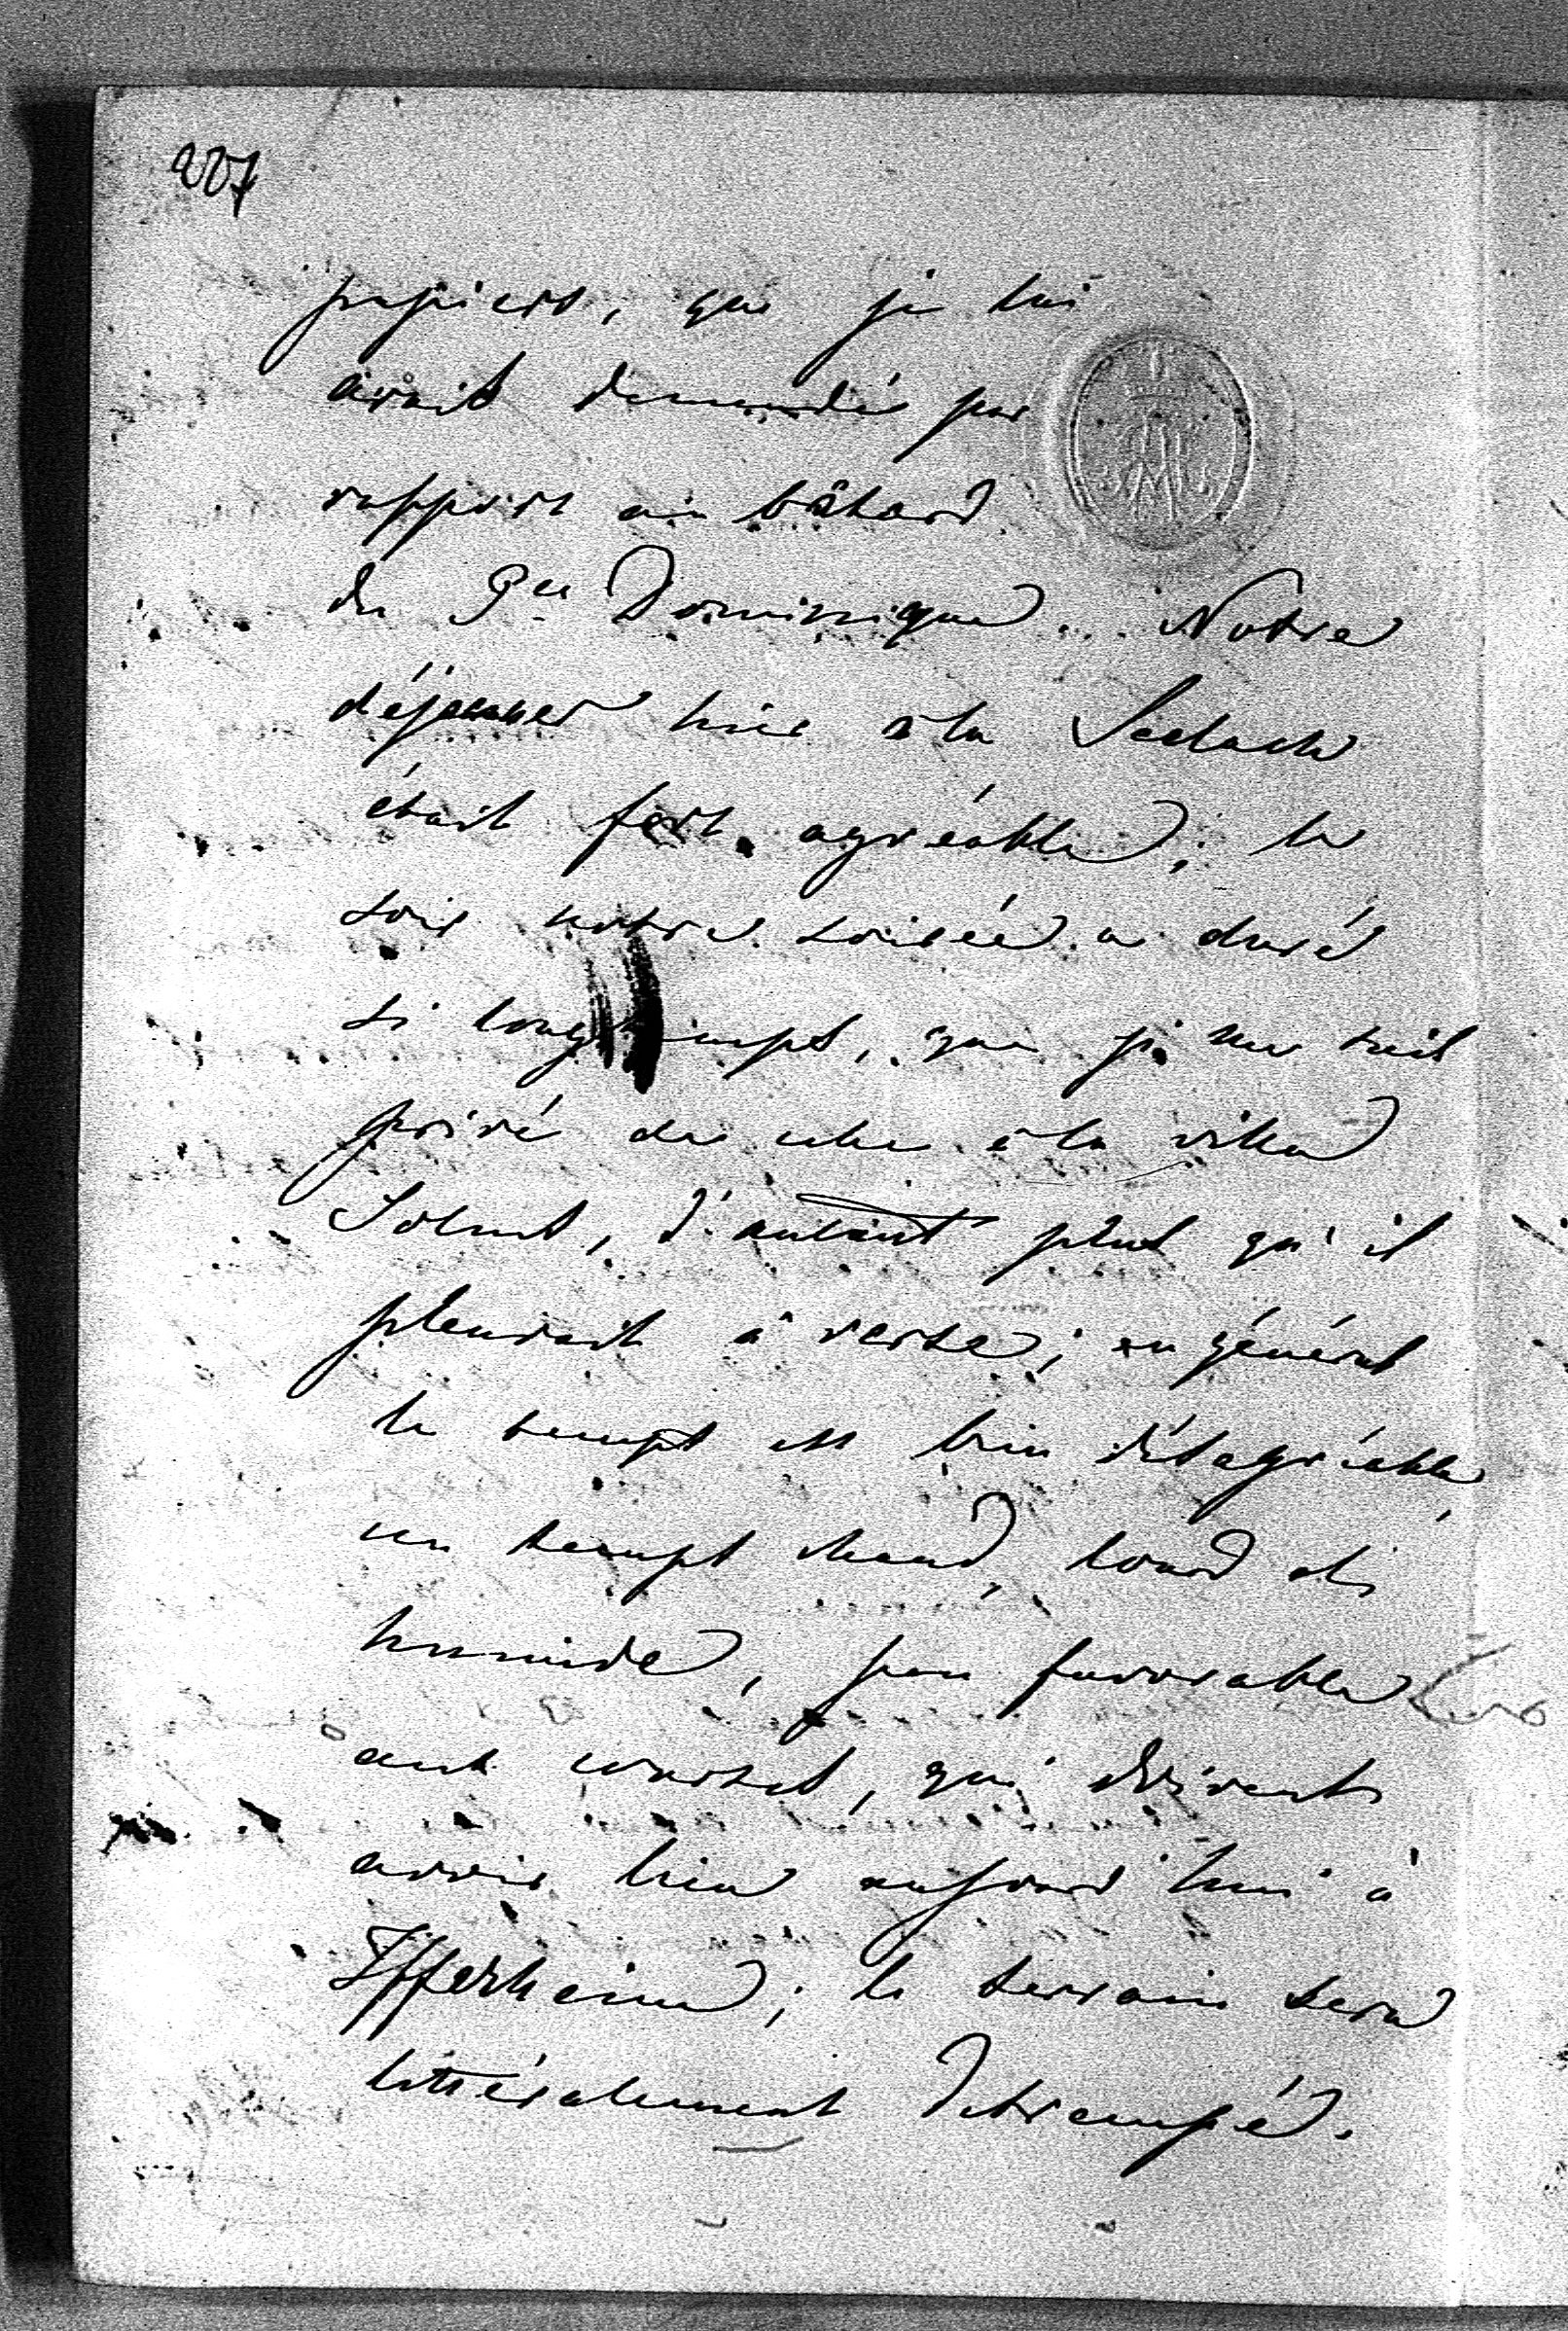 207
papiers, que je lui
avait demandés par
rapport au bâtard
du Pce Dominique. Notre
déjeuner hier à la Seelach
était fort agréable; le
soir notre soirée a duré
si longtemps, que je me suis
privé de celle à la villa
Solms, d'autant plus qu'il
pleuvait à verse; en général
le temps est bien désagréable,
un temps chaud, lourd et
humide, peu favorable
aux courses, qui doivent
avoir lieu aujourd'hui à
Iffezheim; le terrain sera
littéralement détrempé.